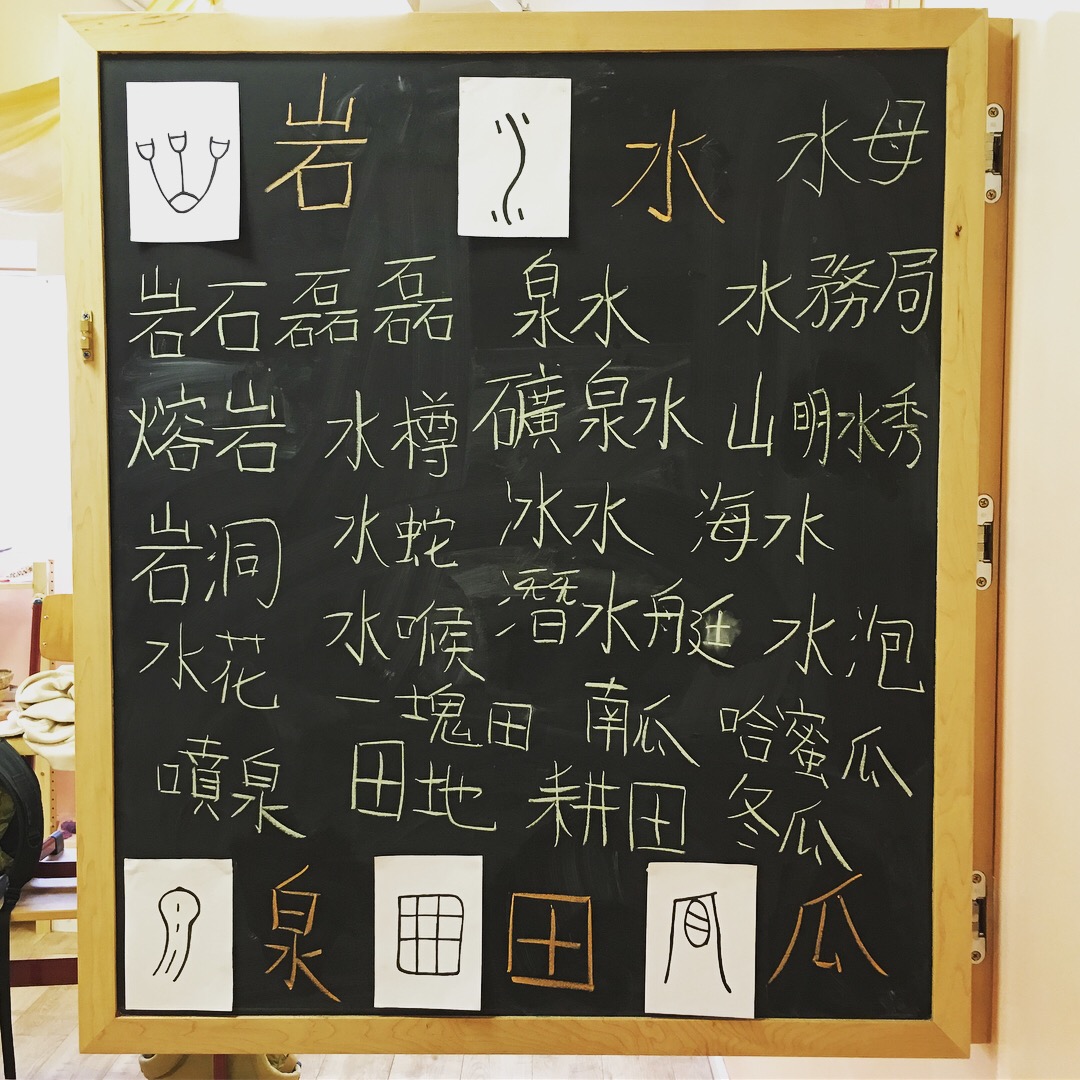 岩 水 水母
岩石磊磊 泉水 水務局
熔岩 水樽 礦泉水 山明水秀
岩洞 水蛇 冰水 海水
水花 水喉 潛水艇 水泡
一塊田 南瓜 哈蜜瓜
噴泉 田地 耕田 冬瓜
泉 田 瓜